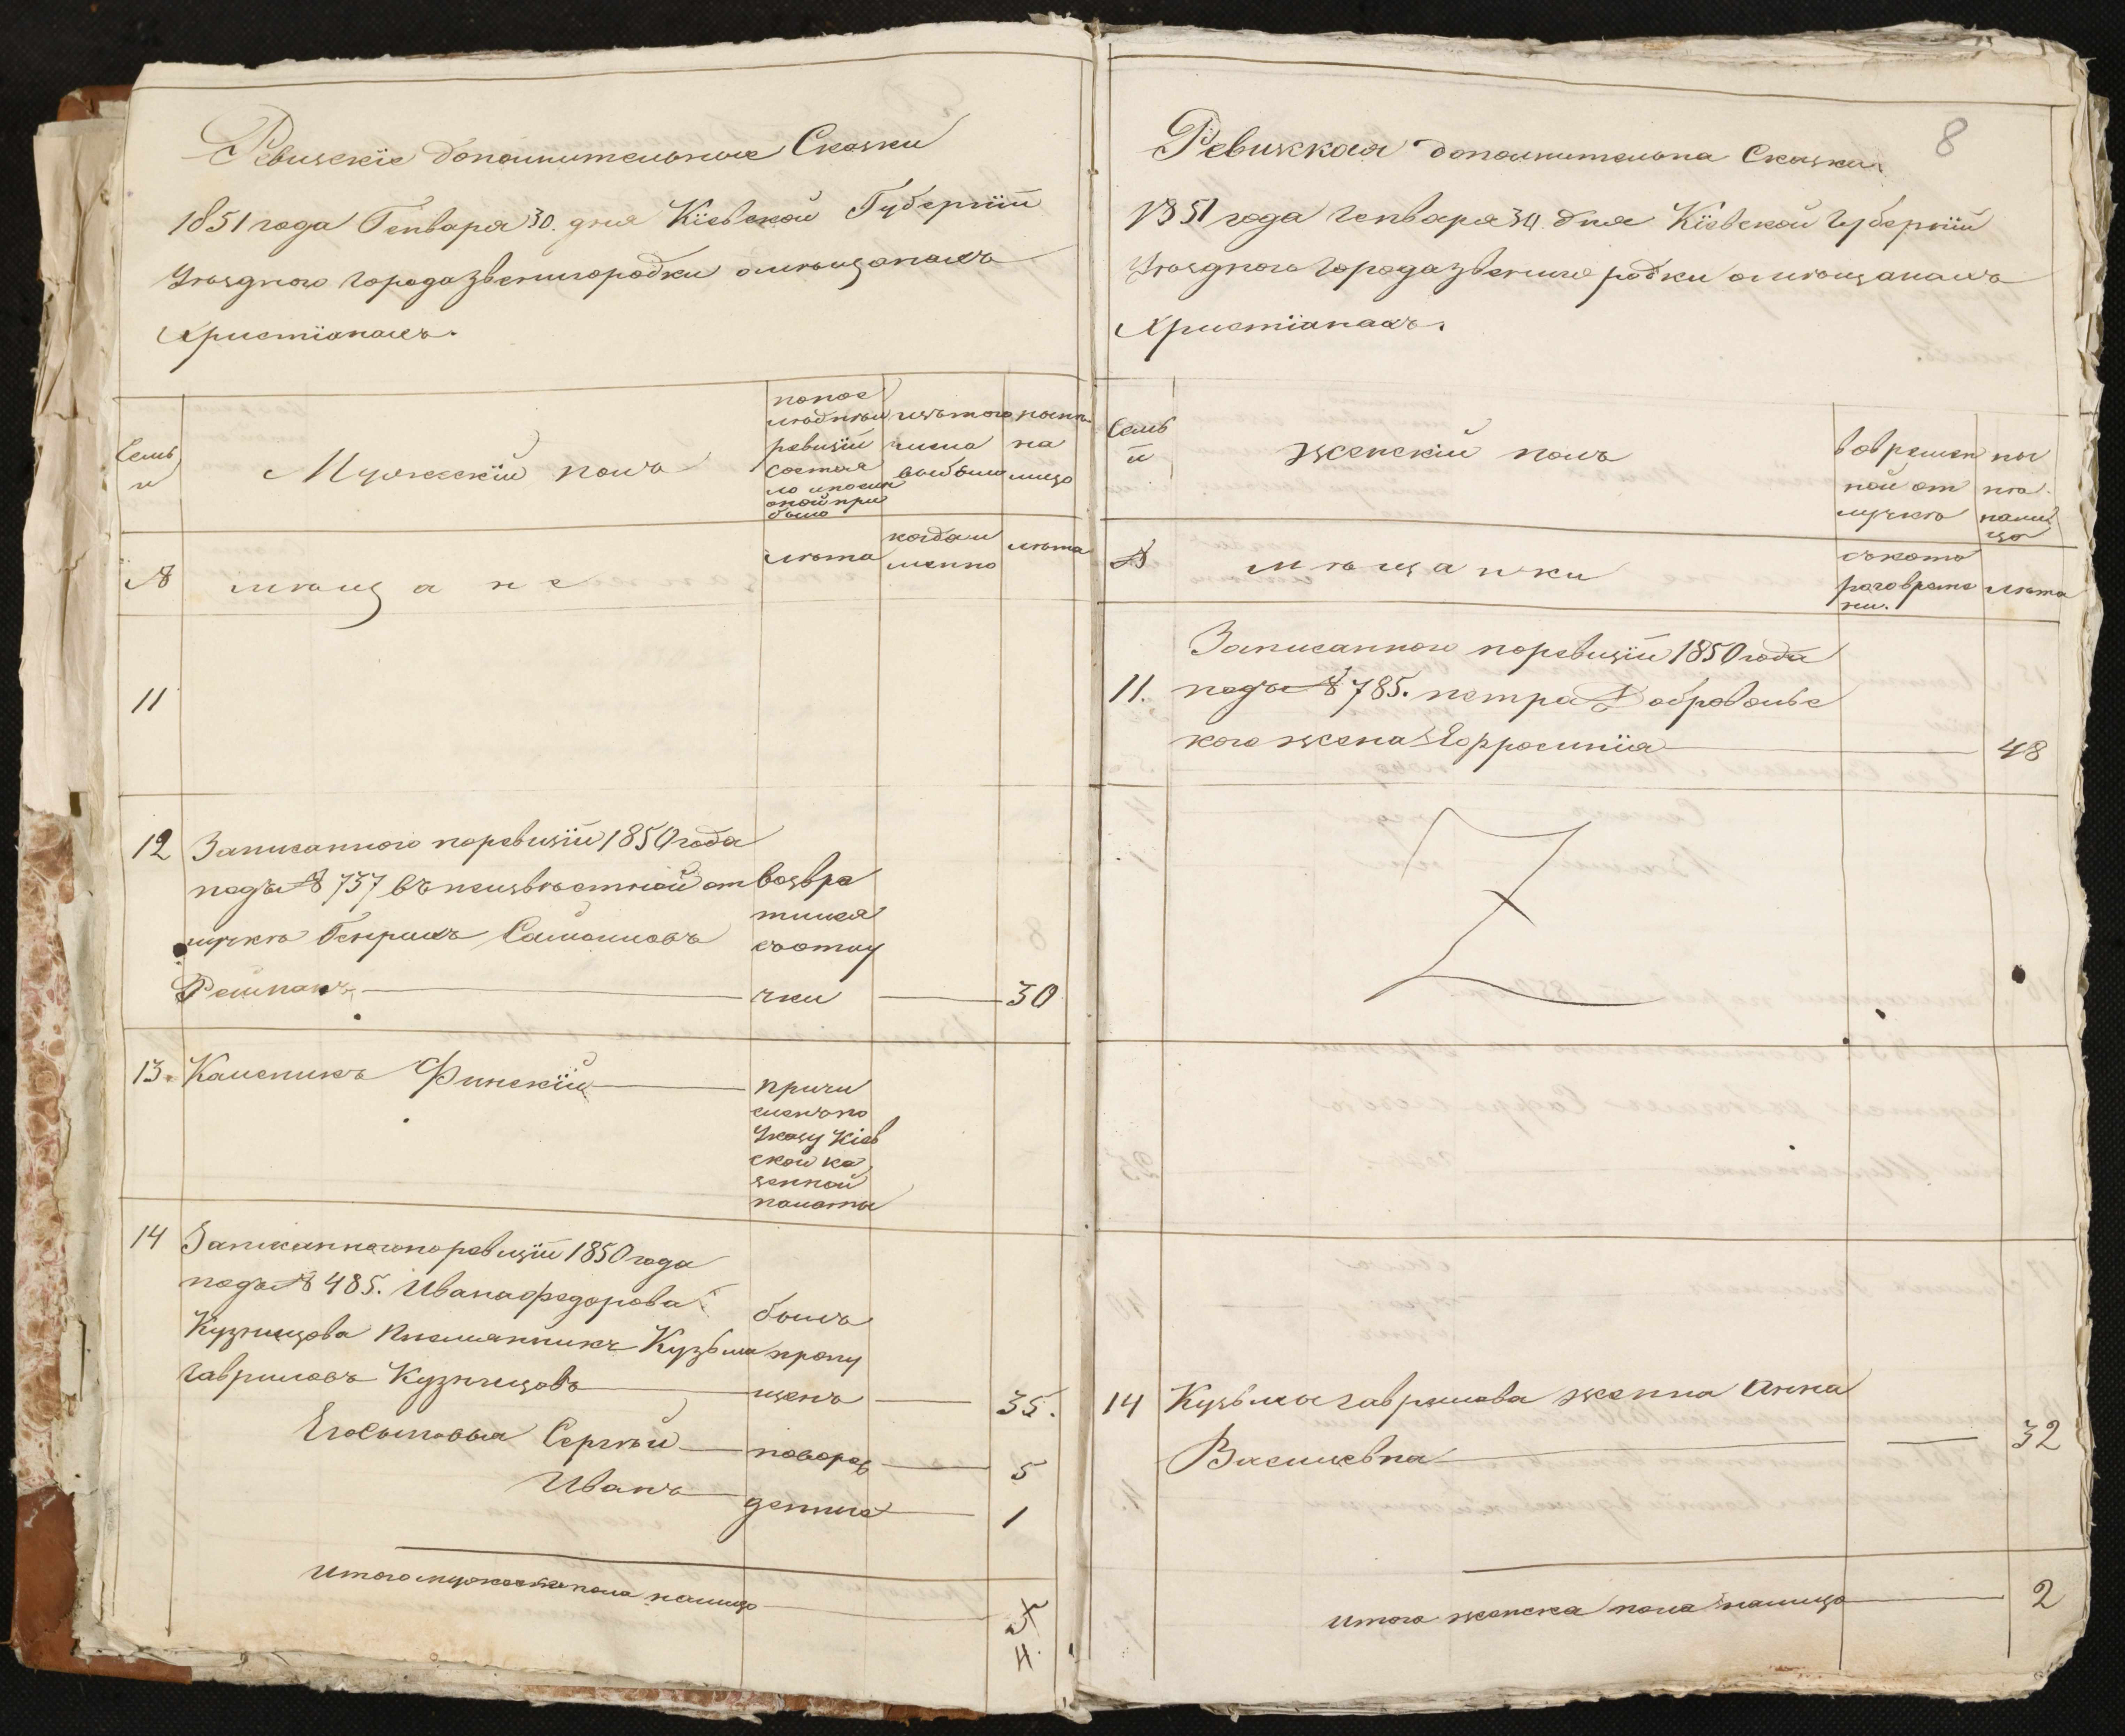 Ревизскіе дополнительные Сказки
1851 года Генваря 30. дня Кіевской Губерніи
Уѣзднаго города звенигородки омѣщанахъ
Христіанахъ.
Семьи
Мужескій полъ
попос
лѣдней
ревизіи
состоя
ло ипосли
оной при
было
изътого
числа
выбыло
ныне
на
лицо
№
мѣщане
лѣта
когда и
менно
лѣта
11
12 Записанного поревизіи 1850 года
подъ № 737 въ неизвѣстной от возвра
лучкѣ Генрихъ Самоиловъ тился
съотлу
Рейманъ чки 30
13. Каменикъ Финскій причи
сленъ по
Указу Кіев
ской ка
зенной
палаты
14 Записанного поревизіи 1850 года
подъ № 485. Ивана федорова былъ
Кузнецова племянникъ Кузьма пропу
гавриловъ Кузнецовъ щенъ 35.
Его сыновья Сергѣй новорож 5
Иванъ денные 1
Итого мужеска пола налицо 5
4.
8
Ревизская дополнительна Сказка
1851 года генваря 30. дня Кіевской губерніи
Уѣзднаго города звенигородки омѣщанахъ
Христіанахъ.
Семьи
женскій полъ
вовремен
ной от
лучкѣ
ны
нѣ
налиц
цо
№
мѣщанки
съкото
раго време
ни.
лѣта
Записанного поревизіи 1850 года
11. подъ № 785. петра Добровольс
кого жена Ефросинія 48
14 Кузьмы гаврилова женна Анна
Васильевна 32
итого женска пола налицо 2